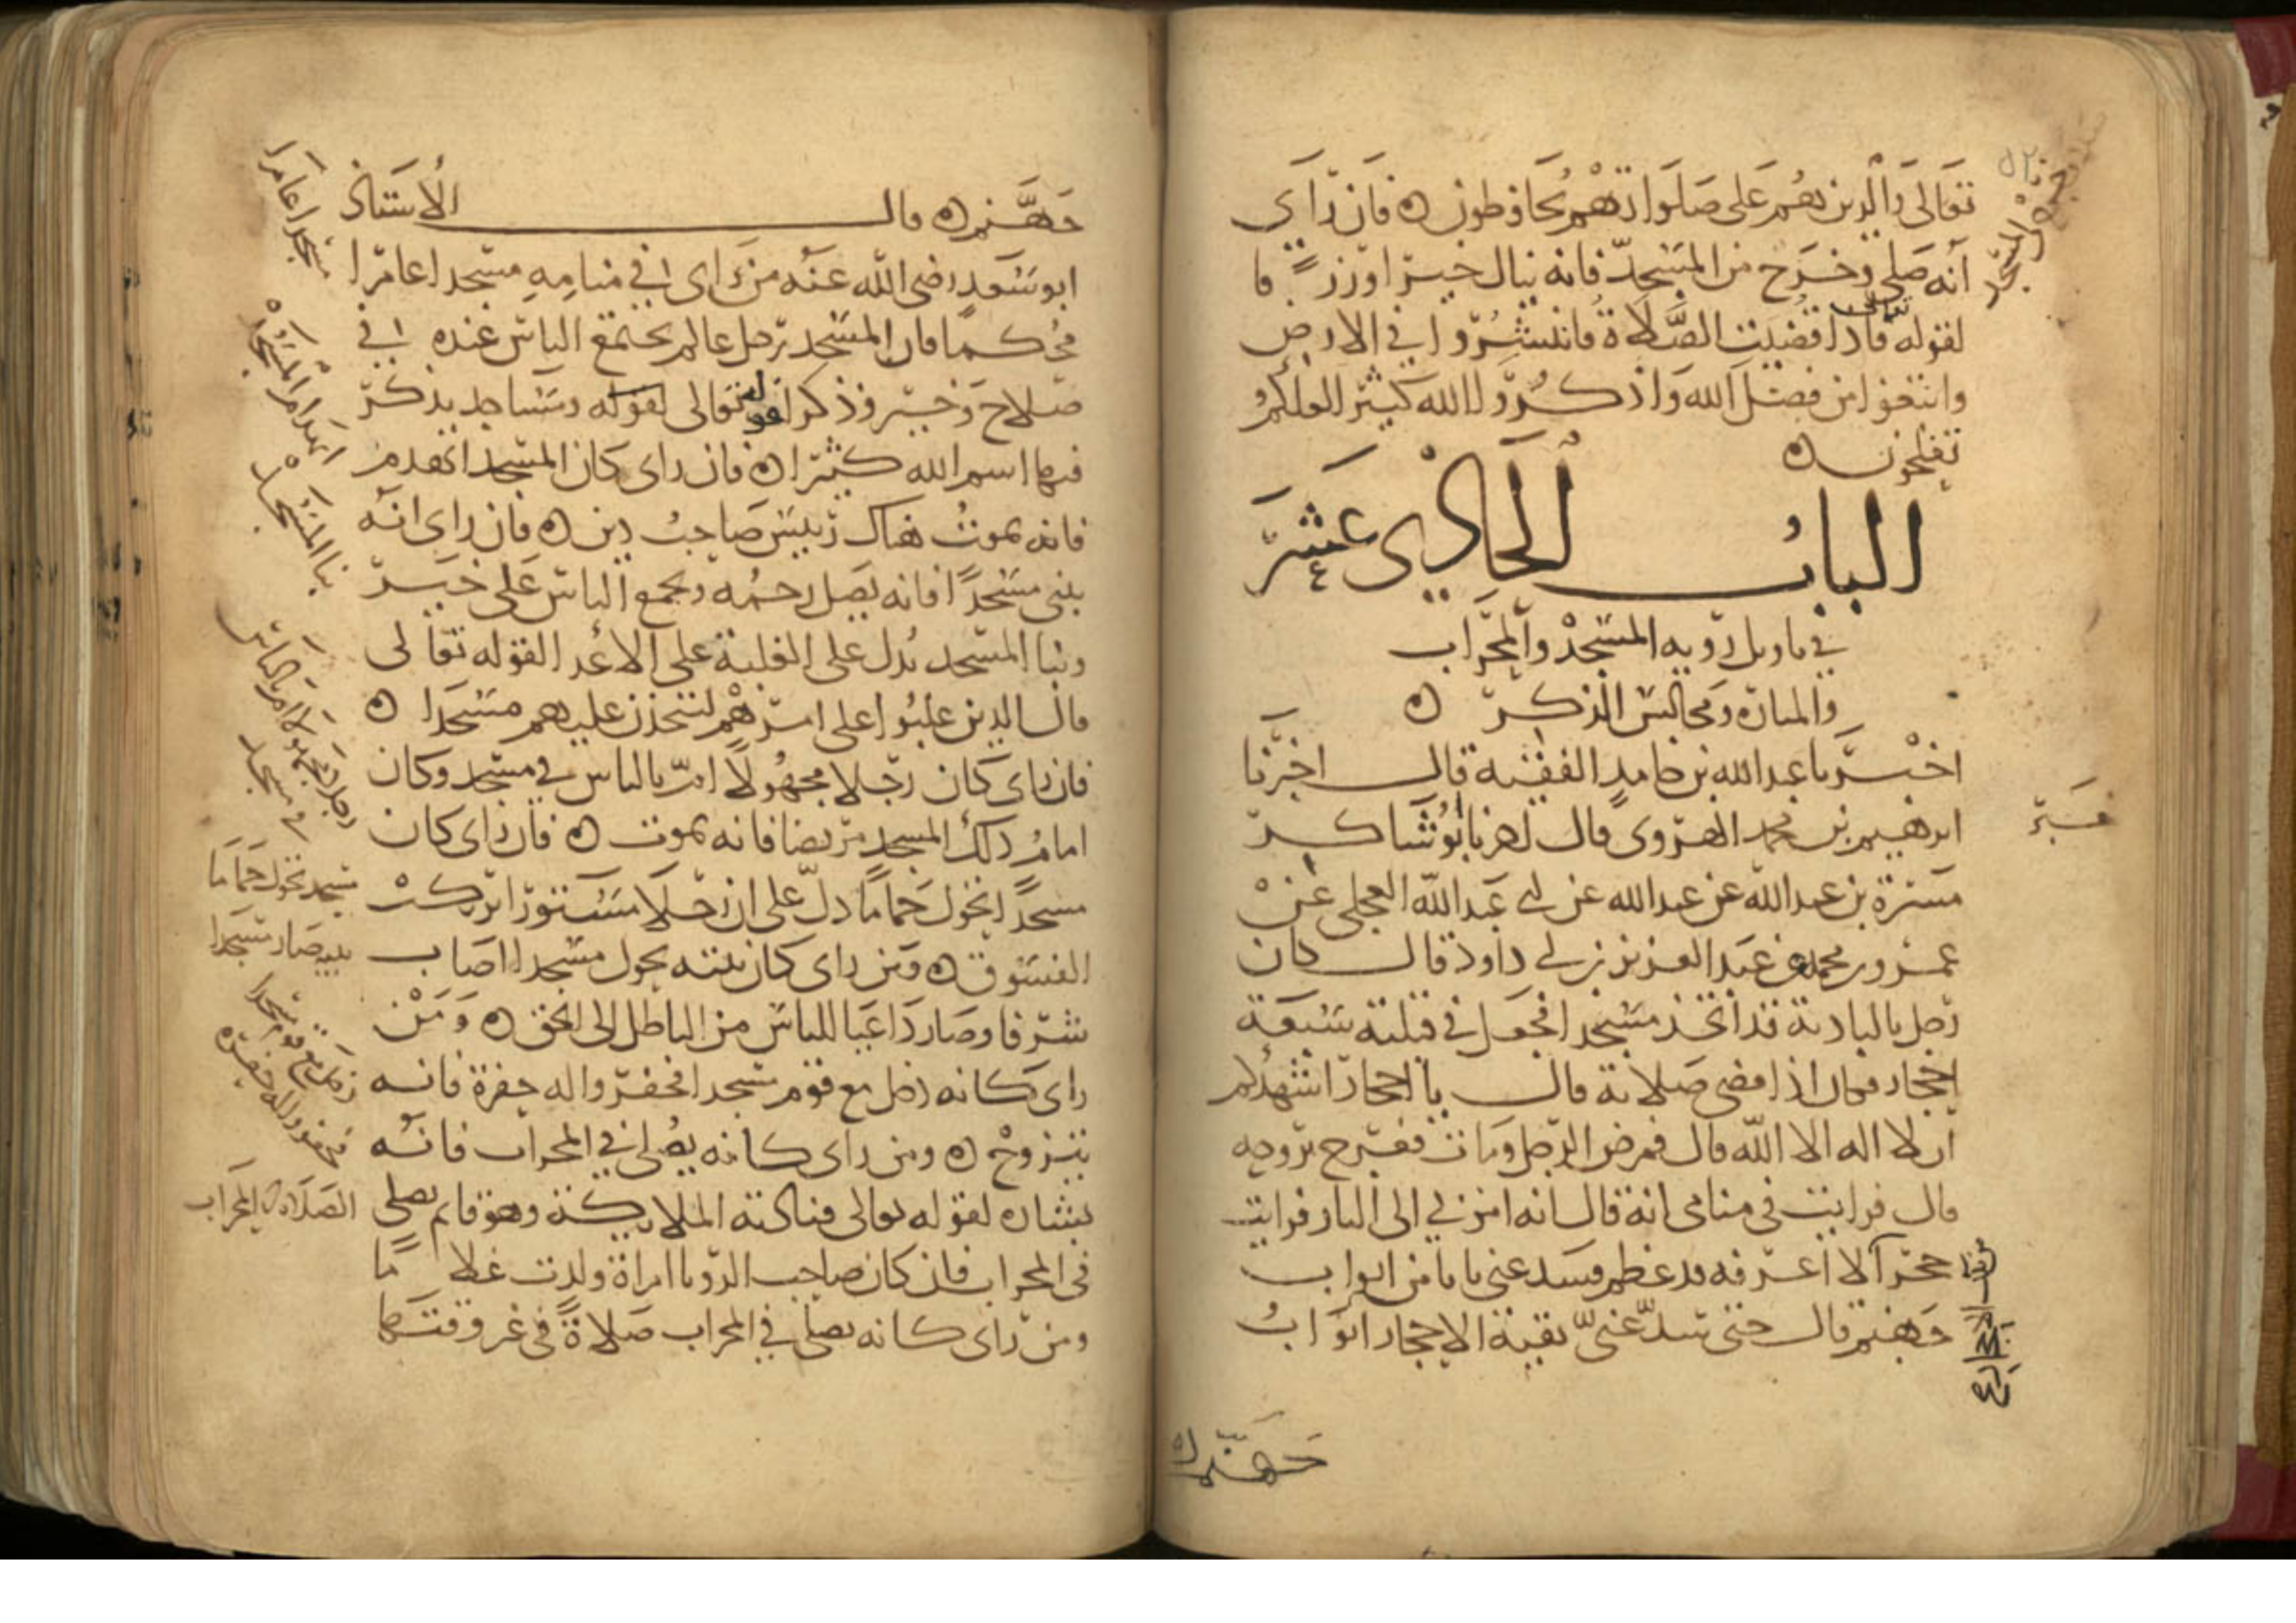 تعالى والذين هم على صلواتهم يحافظون ه فان راى
أنه صلى وخرج من المسجد فانه ينال خيرا ورزقا
تعالى
لقوله فاذا قضيت الصلاة فانتشروا في الارض
وابتغوا من فضل الله واذكروا الله كثيرا لعلكم
تفلحون ه
الباب الحادي عشر
في تاويل رؤيه المسجد والمحراب
والمنارة ومجالس الذكر ه
اخبرنا عبد الله بن حامد الفقيه قال اخبرنا
ابرهيم بن محمد الهروى قال اخبرنا ابو شاكر
مسرة بن عبد الله عن عبد الله عن ابي عبد الله العجلى عن
عمرو بن محمد عن عبد العزيز بن ابي داود قال كان
رجل بالبادية قد اتخذ مسجدا فجعل في قبلته سبعة
احجار فكان اذا قضى صلاته قال يا احجار اشهدكم
ان لا اله الا الله قال فمرض الرجل ومات فعرج بروحه
قال فرايت في منامى انه قال انه امر بي الى النار فرايت
حجرا لا اعرفه قد عظم فسد عنى بابا من ابواب
جهنم قال حتى سد عنى بقية الاحجار ابواب
جهنم ه
خبر
جهنم ه قال الاستاذ
ابو سعد رضى الله عنه من راى في منامه مسجدا عامرا
محكما فان المسجد رجل عالم يجتمع الناس عنده في
صلاح وخير وذكر لقوله تعالى لقوله ومساجد يذكر
فيها اسم الله كثيرا ه فان راى كان المسجد انهدم
فانه يموت هناك رئيس صاحب دين ه فان راى انه
بنى مسجدا فانه يصل رحمه ويجمع الناس على خير
وبنا المسجد يدل على الغلبة على الاعدا لقوله تعالى
قال الذين غلبوا على امرهم لنتخذن عليهم مسجدا ه
فان راى كان رجلا مجهولا ام بالناس في مسجد وكان
امام ذلك المسجد مريضا فانه يموت ه فان راى كان
مسجدا تحول حماما دل على ان رجلا مستورا يرتكب
الفسوق ه ومن راى كان بيته يحول مسجدا اصاب
شرفا وصار داعيا للناس من الباطل الى الحق ه ومن
راى كانه دخل مع قوم مسجدا فحفروا له حفرة فانه
يتزوج ه ومن راى كانه يصلى في المحراب فانه
بشارة لقوله تعالى فنادته الملايكة وهو قايم يصلى
في المحراب فان كان صاحب الرويا امراة ولدت غلاما
ومن راى كانه يصلى في المحراب صلاة في غير وقتها
مسجدا عامرا
انهدام المسجد
بنا المسجد
رجل مجهول ام بالناس
في مسجد
مسجد تحول حماما
بيته صار مسجدا
دخل مع قوم مسجدا
فحفروا له حفرة
الصلاة في المحراب